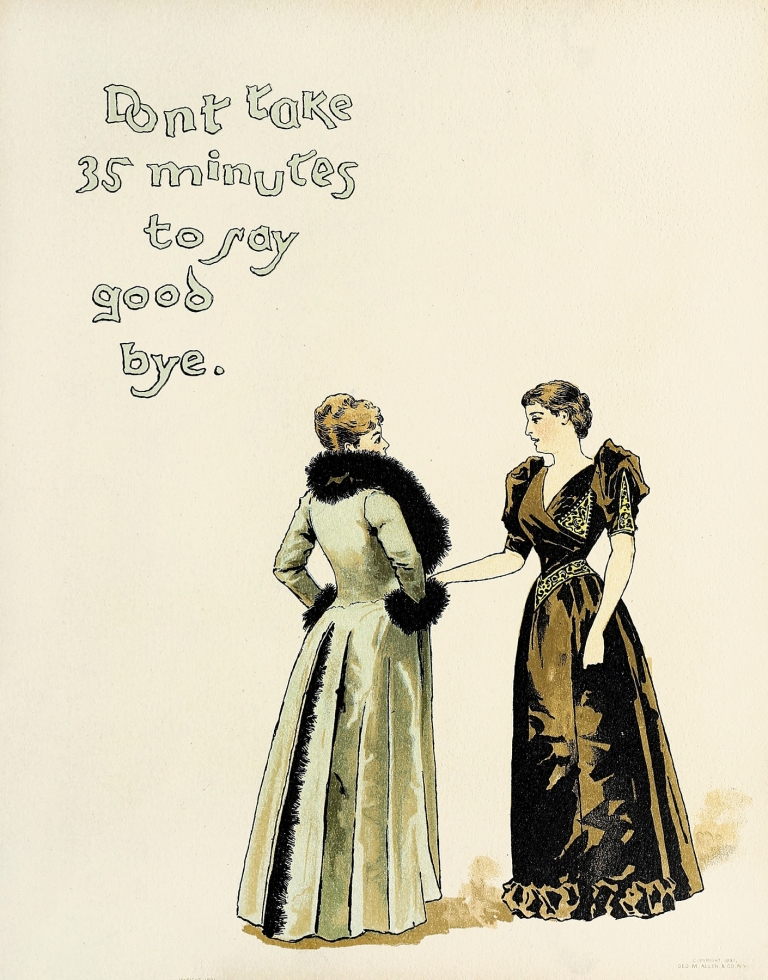 Dont take
35 minutes
to say
good
bye.
COPYRIGHT 1891,
GEO. M. ALLEN & CO. N.Y.